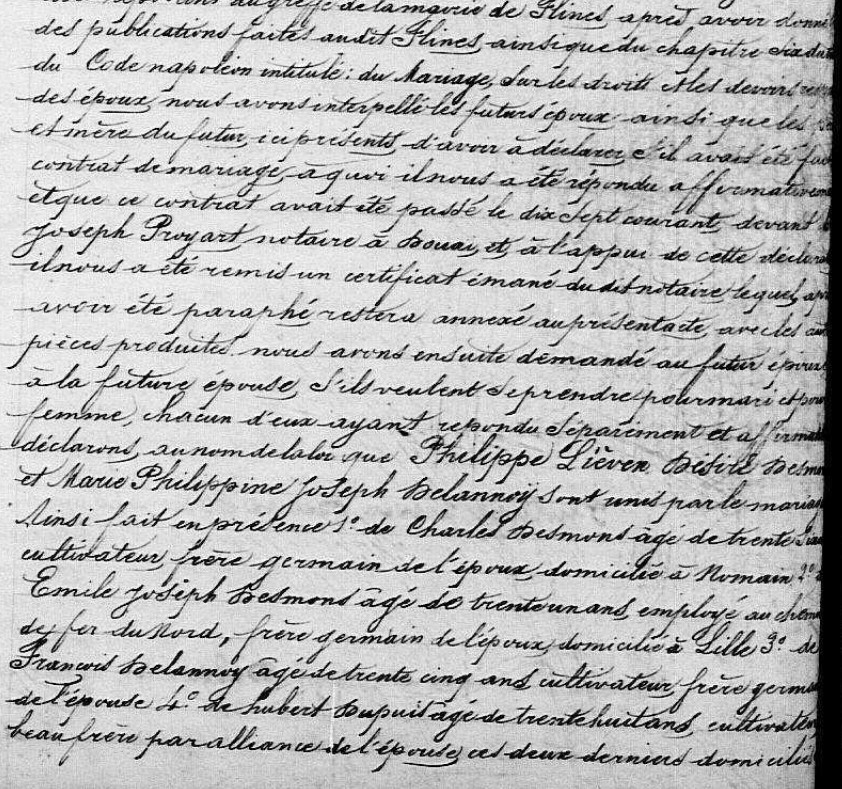 au greffe de la mairie de Flines, après avoir donné
des publications faites audit Flines ainsi que du chapitre six du
du Code napoléon intitulé: du Mariage, sur les droits et les devoirs
des époux, nous avons interpellé les futurs époux ainsi que les
et mère du futur, ici présents, d'avoir à déclarer, s'il avait été fait
contrat de mariage, à quoi il nous a été répondu affirmativement
et que ce contrat avait été passé le dix sept courant, devant
Joseph Proyart notaire à Douai, et, à l'appui de cette
il nous a été remis un certificat émané du dit notaire lequel,
avoir été paraphé restera annexé au présent acte, avec les
pièces produites. nous avons ensuite demandé au futur époux,
à la future épouse, s'ils veulent se prendre pour mari et pour
femme, chacun d'eux ayant repondu séparement et
déclarons, au nom de la loi que Philippe Liéven Désiré
et Marie Philippine Joseph Delannoy sont unis par le
Ainsi fait en présence 1º de Charles Desmons âgé de trente
cultivateur, frère germain de l'époux, domicilié à Nomain 2º
Emile Joseph Desmons âgé de trente un ans, employé au
de fer du Nord, frère germain de l'époux, domicilié à Lille 3º de
François Delannoy âgé de trente cinq ans cultivateur frère
de l'épouse 4º de hubert Dupuit âgé de trente huit ans,
beau frère par alliance de l'épouse, ces deux derniers